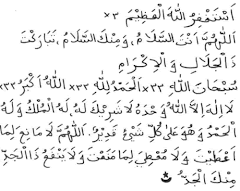 اَسْتَغْفِرُ اللهَ الْعَظِيْمَ ×٣
اَللّٰهُمَّ اَنْتَ السَّلَامُ، وَمِنْكَ السَّلَامُ، تَبَارَكْتَ
ذَا الْجَلَالِ وَالْاِكْرَامِ
سُبْحَانَ اللهِ ×٣٣ اَلْحَمْدُ لِلّٰهِ ×٣٣ اَللهُ اَكْبَرُ ×٣٣
لَا اِلٰهَ اِلَّا اللهُ وَحْدَهُ لَا شَرِيْكَ لَهُ، لَهُ الْمُلْكُ وَلَهُ
الْحَمْدُ وَهُوَ عَلٰى كُلِّ شَيْئٍ قَدِيْرٌ، اَللّٰهُمَّ لَا مَانِعَ لِمَا
اَعْطَيْتَ وَلَا مُعْطِيَ لِمَا مَنَعْتَ وَلَا يَنْفَعُ ذَا الْجَدِّ
مِنْكَ الْجَدُّ